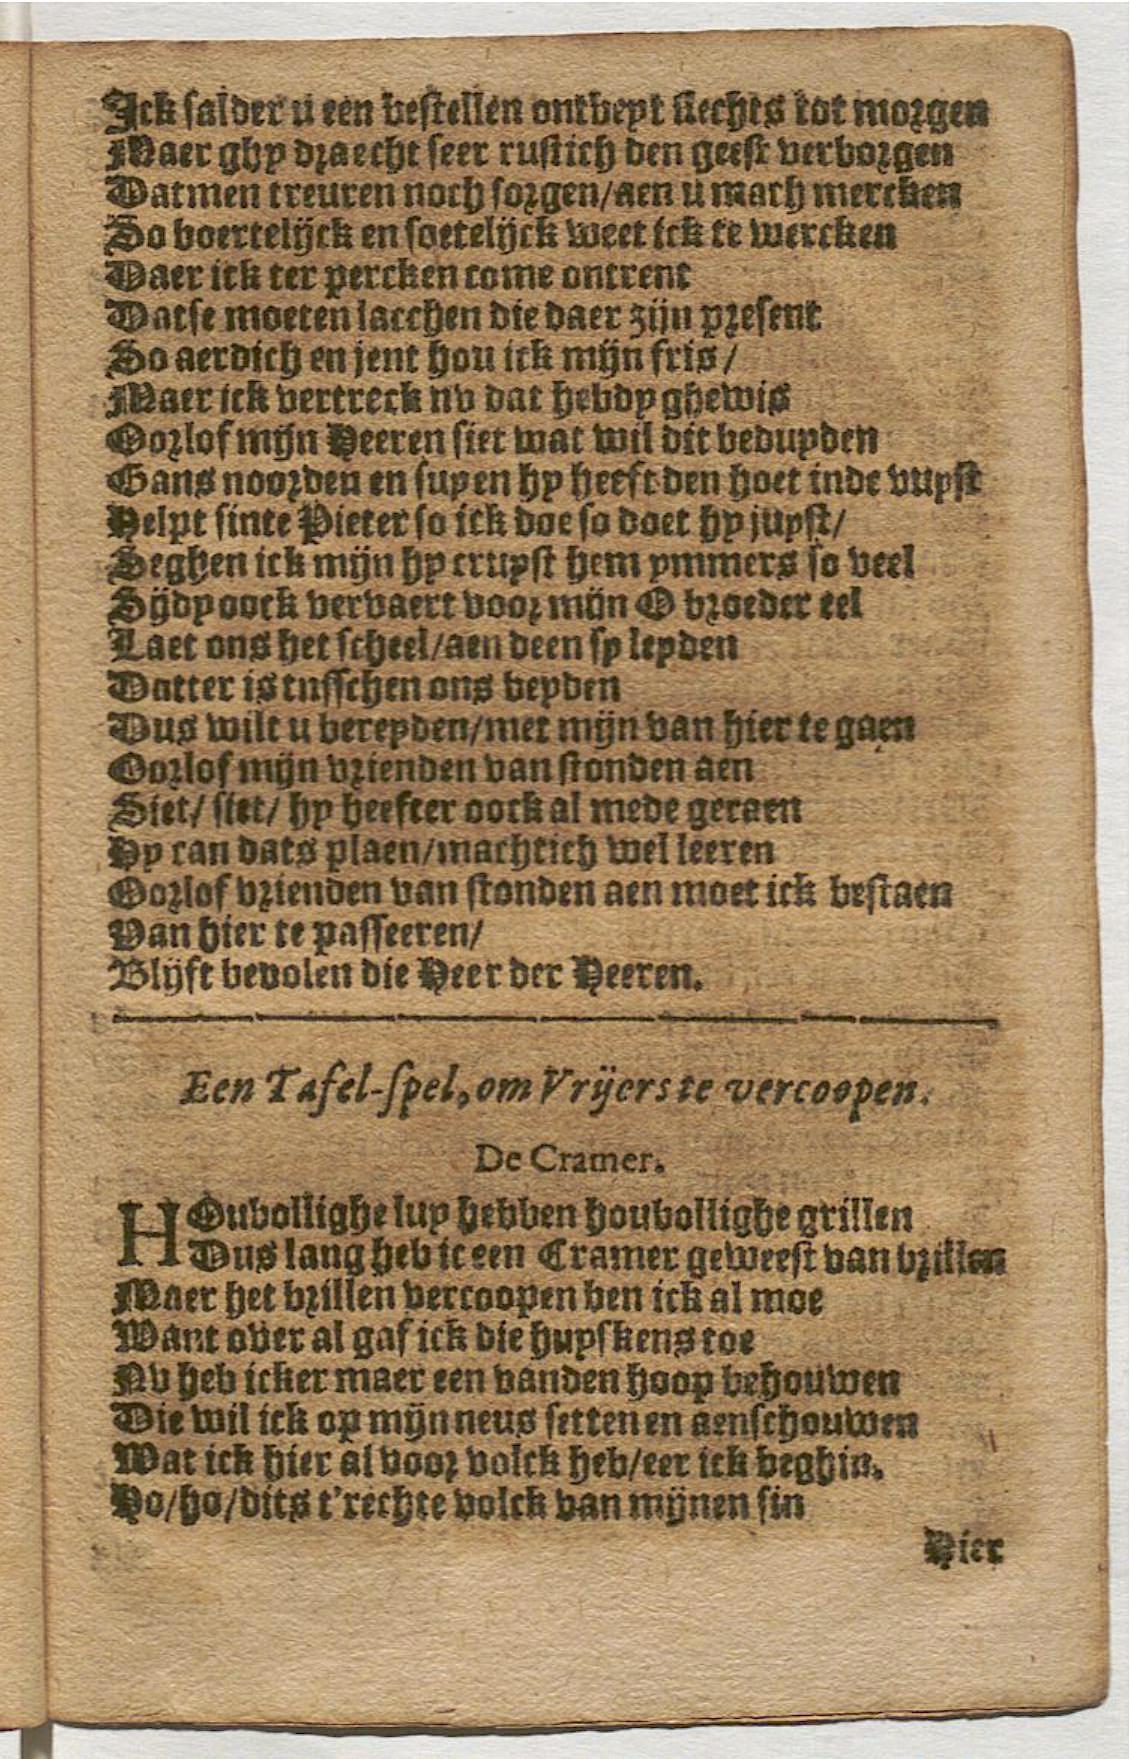 Ick salder u een bestellen ontbeyt slechts tot morgen
Maer ghy draecht seer rustich den geest verborgen
Datmen treuren noch sorgen/aen u mach mercken
So boertelijck en soetelijck weet ick te wercken
Daer ick ter percken come ontrent
Datse moeten lacchen die daer zijn present
So aerdich en jent hou ick mijn fris/
Maer ick vertreck nv dat hebdy ghewis
Oorlof mijn Heeren siet wat wil dit beduyden
Gans noorden en suyen hy heeft den hoet inde vuyst
Helpt sinte Pieter so ick doe so doet hy juyst/
Seghen ick mijn hy cruyst hem ymmers so veel
Sijdy oock vervaert voor mijn O broeder eel
Laet ons het scheel/aen deen sy leyden
Datter is tusschen ons beyden
Dus wilt u bereyden/met mijn van hier te gaen
Oorlof mijn vrienden van stonden aen
Siet/ siet/ hy heefter oock al mede geraen
Hy can dats plaen/machtich wel leeren
Oorlof vrienden van stonden aen moet ick bestaen
Van hier te passeeren/
Blijft bevolen die Heer der Heeren.
Een Tafel-spel, om Vrijers te vercoopen.
De Cramer.
HOubollighe luy hebben houbollighe grillen
Dus lang heb ic een Cramer geweest van brillen
Maer het brillen vercoopen ben ick al moe
Want over al gaf ick die huyskens toe
Nv heb icker maer een vanden hoop behouwen
Die wil ick op mijn neus setten en aenschouwen
Wat ick hier al voor volck heb/eer ick beghin.
Ho/ho/dits t'rechte volck van mijnen sin
Hier